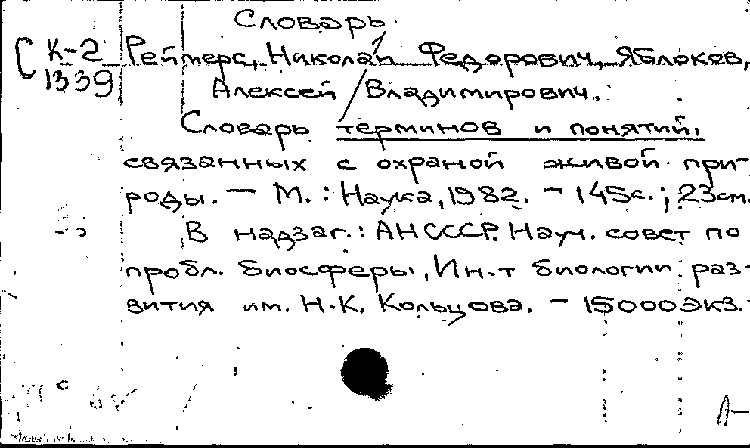 Словарь.
С К-2 Реймерс, Николай Федорович, Яблоков,
1339 Алексей Владимирович.
Словарь терминов и понятий,
связанных с охраной живой при-
роды. — М.: Наука, 1982. — 145с.; 23см.
В надзаг.: АН СССР. Науч. совет по
пробл. биосферы, Ин-т биологии раз-
вития им. Н.К. Кольцова. — 15000экз.